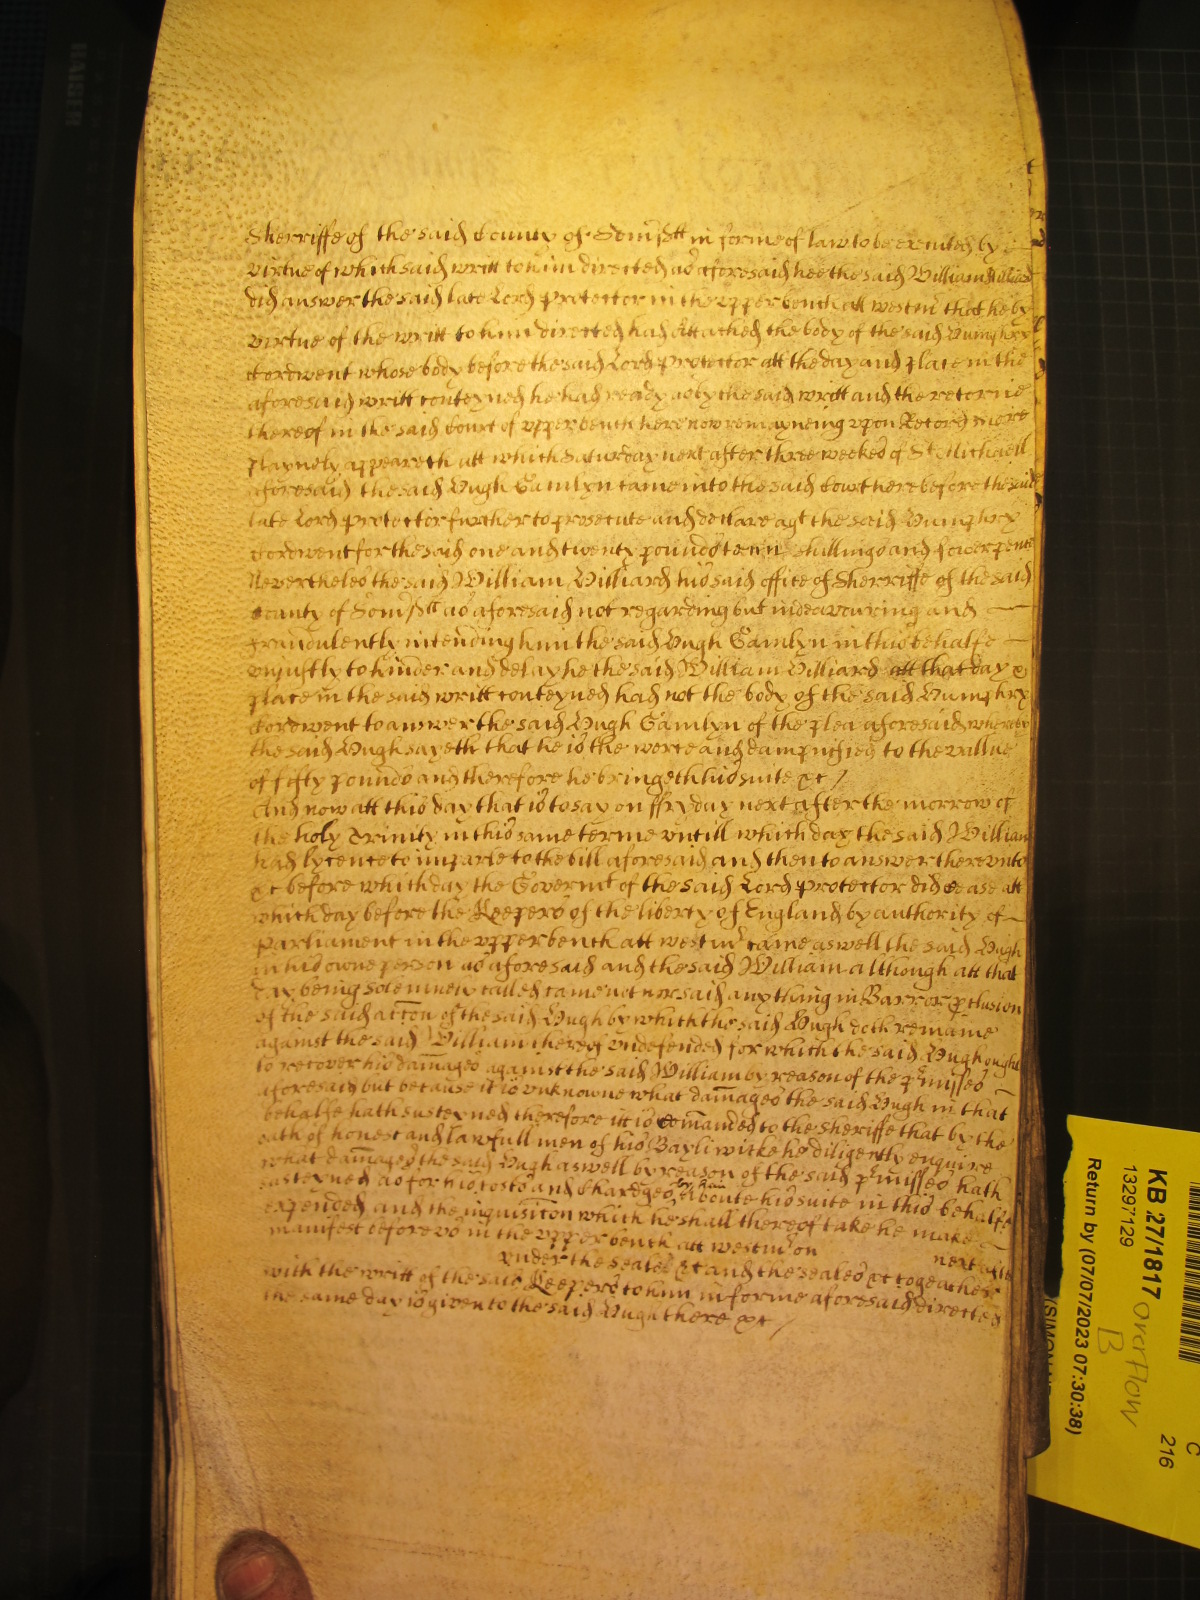 Sherriffe of the said County of Som̃sett in forme of law to be executed by
virtue of which said writt to him directed as aforesaid hee the said William Hilliard
did answer the said late Lord Protector in the vpper bench att westm̃ that he by
virtue of the writt to him directed had Attached the body of the said Humphry
Cordwent whose body before the said Lord Protector att the day and place in the
aforesaid writt conteyned he had ready as by the said writt and the retorne
thereof in the said Court of vpper bench here now remayneing vpon Record more
playnely appeareth att which Saturday next after three weekes of St Michaell
aforesaid the said Hugh Gamlyn came into the said Court here before the said
late Lord Protector further to prosecute and declare agt the said Humphry
Cordwent for the said one and twenty pounds tenn shillings and fower pence
Nevertheles the said William Hilliard his said office of Sherriffe of the said
County of Som̃sett as aforesaid not regarding but indeavouring and
fraudulently intending him the said Hugh Gamlyn in this behalfe
vnjustly to hinder and delay he the said William Hilliard att that day &
place in the said writt conteyned had not the body of the said Humphry
Cordwent to answer the said Hugh Gamlyn of the plea aforesaid whereby
the said Hugh sayeth that he is the worse and dampnified to the vallue
of fifty pounds and therefore he bringeth his suite &c /
And now att this day that is to say on ffryday next after the morrow of
the holy Trinity in this same terme vntill which day the said William
had lycence to imparle to the bill aforesaid and then to answer therevnto
&c before which day the Governmt of the said Lord Protector did cease att
which day before the Keepers of the liberty of England by authority of
Parliament in the vpper bench att westm̃ came aswell the said Hugh
in his owne person as aforesaid and the said William although att that
day being solemnely called came not nor said any thing in Barr or p̱clusion
of the said acc̃on of the said Hugh by which the said Hugh doth remaine
against the said William thereof vndefended for which the said Hugh ought
to recover his dam̃ages against the said William by reason of the p̱misses
aforesaid but because it is vnknowne what dam̃ages the said Hugh in that
behalfe hath susteyned therefore it is com̃anded to the sheriffe that by the
oath of honest and lawfull men of his Bayliwicke he diligently enquire
what dam̃ages the said Hugh aswell by reason of the said p̱misses hath
susteyned as for his costs and chardges by him aboute his suite in this behalfe
expended and the inquisic̃on which he shall thereof take he make
manifest before vs in the vpper bench att westm̃ on next after
vnder the seale &c and the seales &c togeather
with the writt of the said Keepers to him in forme aforesaid directed
the same day is given to the said Hugh there &c /
KB 27/1817
13297129
Return by (07/07/2023 07:30:38)
Overflow
B
C
216
HAISER